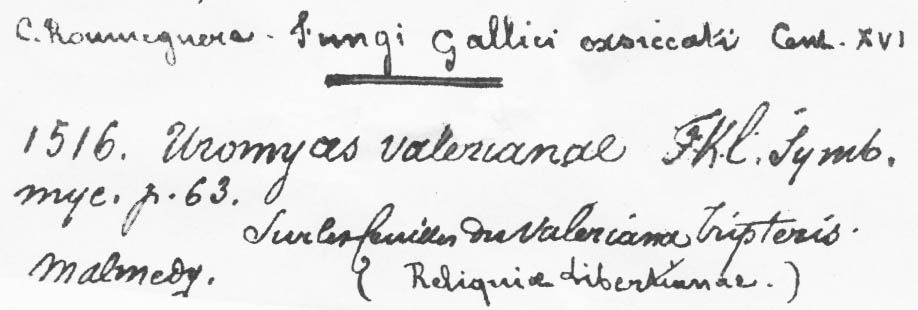 C. Roumeguere - Fungi Gallici exsiccati Cent. XVI
1516. Uromyces valerianae FKl. Symb.
myc. p. 63.
Sur les feuilles du Valeriana tripteris.
Malmedy. ( Reliquiæ Libertianae. )